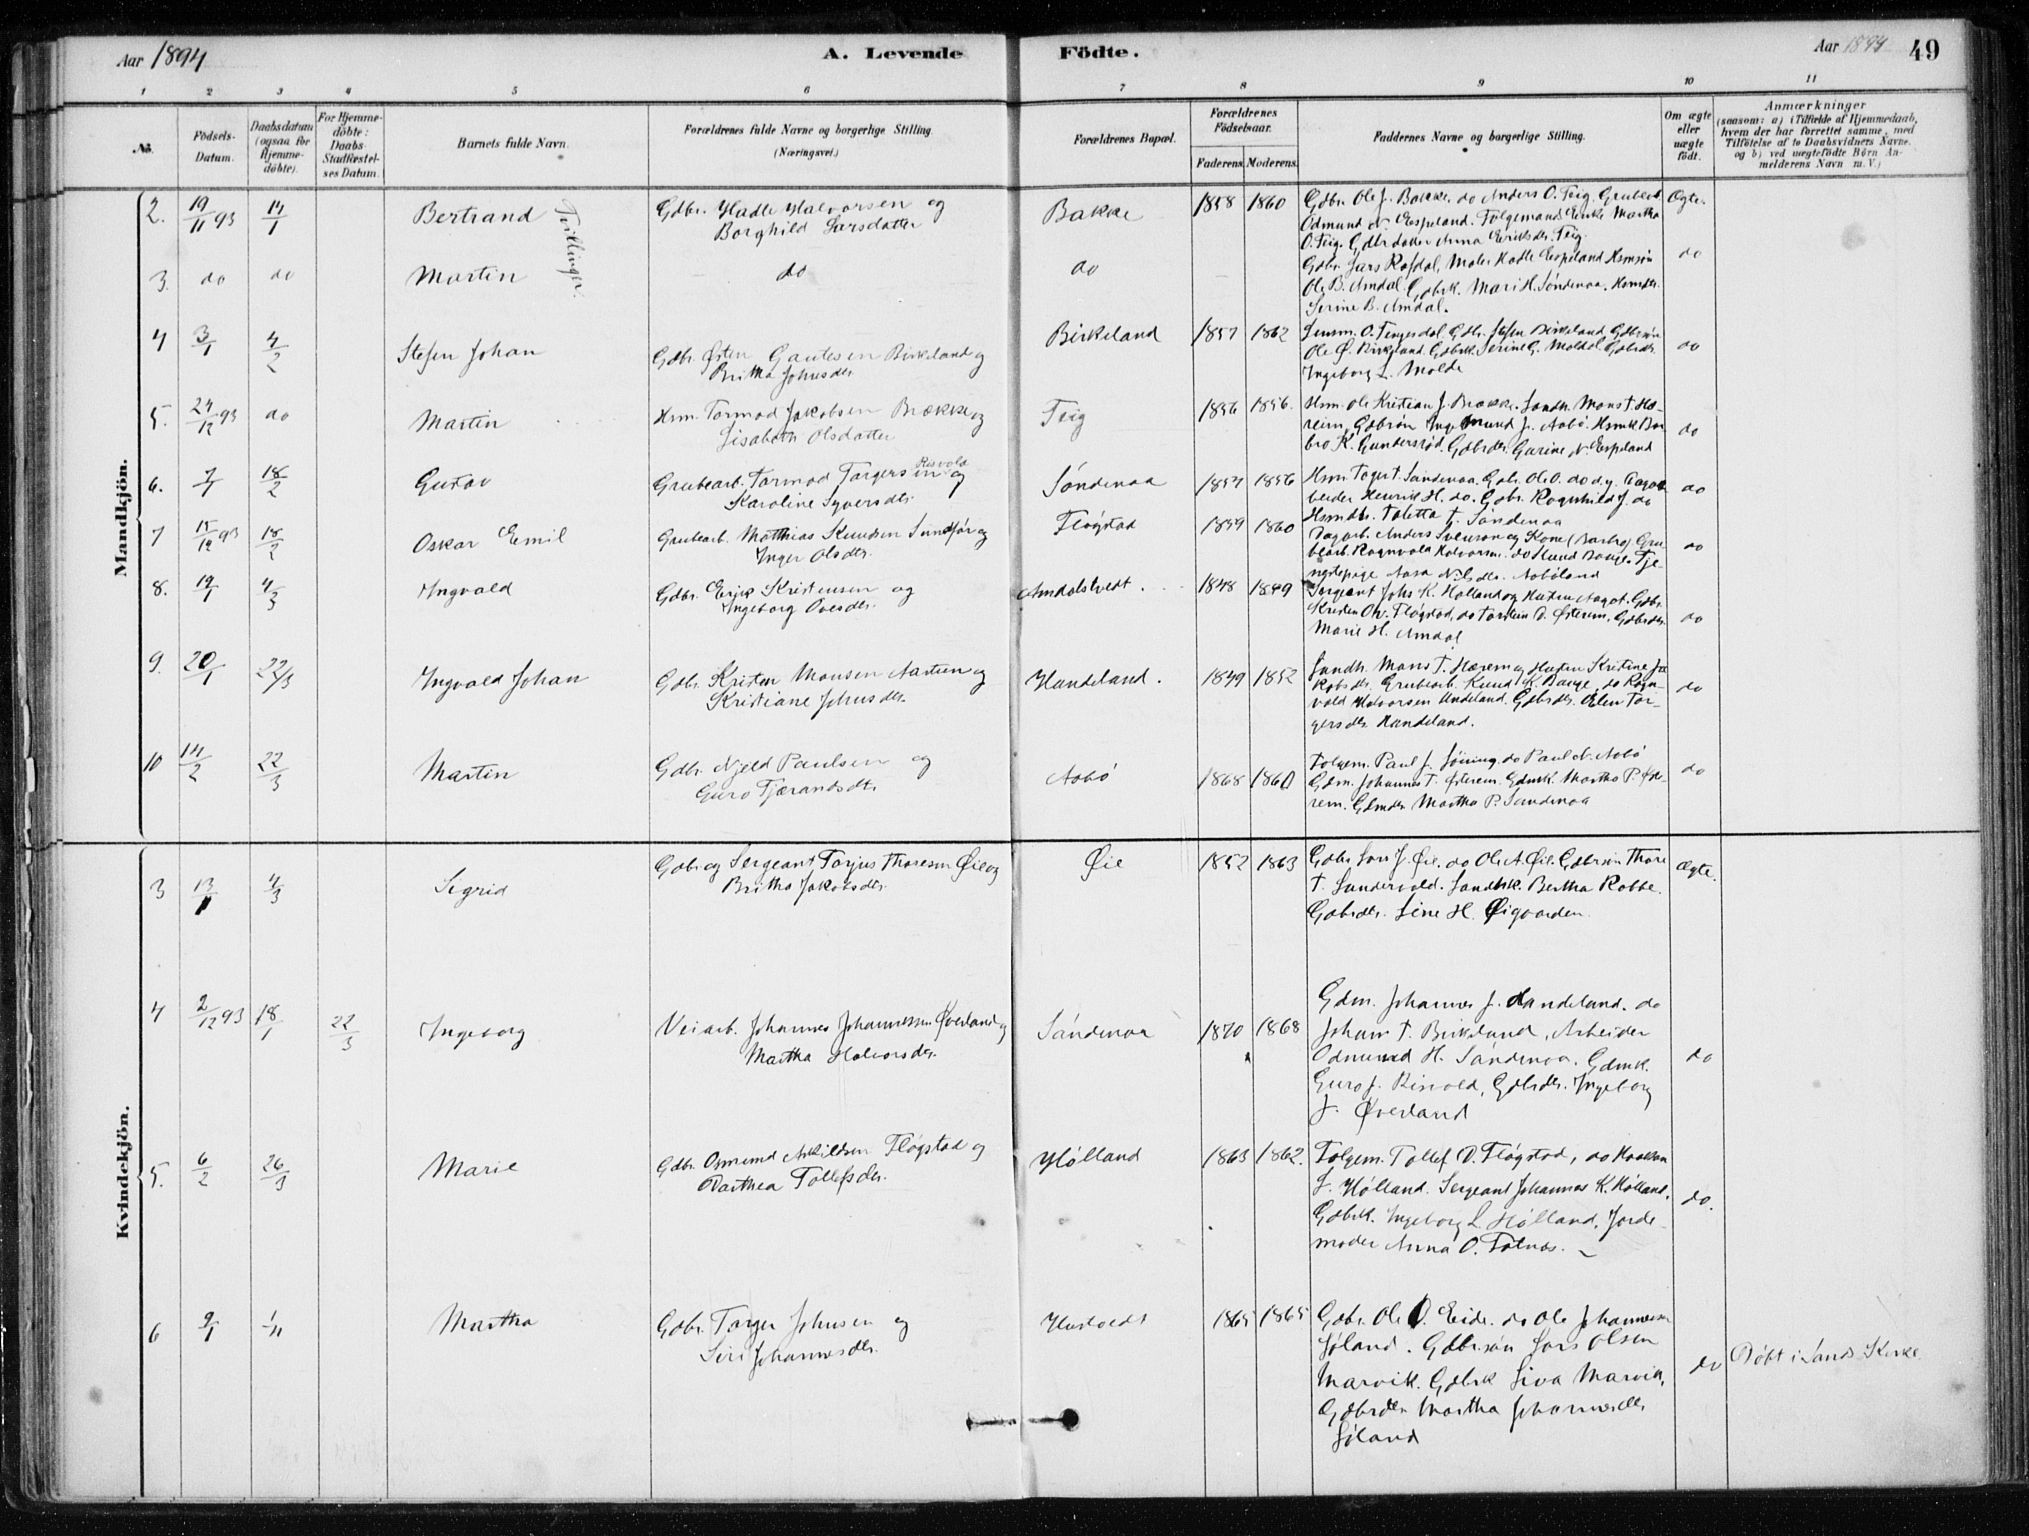 Aar 1894
A. Levende Födte.
Aar 1894
49
1 2 3 4 5 6 7 8 9 10 11
No.
Födsels-Datum.
Daabsdatum (ogsaa for Hjemme-döbte).
For Hjemme-döbte: Daabs-Stadfæstel-ses Datum.
Barnets fulde Navn.
Forældrenes fulde Navne og borgerlige Stilling. (Næringsvei.)
Forældrenes Bopæl.
Forældrenes Födselsaar.
Faderens. Moderens.
Faddernes Navne og borgerlige Stilling.
Om ægte eller uægte födt.
Anmærkninger
(saasom: a) i Tilfælde af Hjemmedaab, hvem der har forrettet samme, med Tilföielse af to Daabsvidners Navne. og b) ved uægtefödte Börn An-melderens Navn m. V.)
Mandkjön.
2. 19/11 93 14/1 Bertrand
Tvillinger.
Gdbr. Hadle Halvorsen og
Borghild Larsdatter
Bakke 1858 1860
Gdbr. Ole J. Bakke. do Anders O. Teig. Grubearb.
Odmund N. Espeland. Følgemands Enke Martha
O. Teig. Gdbrdatter Anna Eriksdr. Teig.
Ægte.
3. do do Martin do do
Gdbr. Lars Rafdal, Maler Hadle Espeland Hsmsøn
Ole B. Amdal. Gdbrk. Mari H. Søndenaa. Hsmdr.
Serine B. Amdal.
do
4 3/1 4/2 Stefen Johan
Gdbr. Østen Gautesen Birkeland og
Britha Johnsdr.
Birkeland 1857 1862
Lensm. O. Tengesdal Gdbr. Stefen Birkeland, Gdbrsøn
Ole Ø. Birkeland. Gdbrk. Serine G. Moldal Gdbrdr.
Ingeborg L. Molde
do
5. 24/12 93 do Martin
Hsm. Tormod Jakobsen Brække og
Lisabeth Olsdatter
Teig 1856 1856.
Hsm. Ole Kristian J. Brække. Landh. Mons T. Hæ-
reim, Gdbrsøn Ingemund J. Aabø. Hsmk Bar-
bro K. Gunderstød. Gdbrdr. Gurine N. Espeland
do
6. 7/1 18/2 Gustav
Grubearb. Tormod Torgersen Risvold og
Karoline Syversdr.
Søndenaa 1857 1856
Hsm. Tore T. Søndenaa. Gdbr. Ole O. do d.y. Dagar-
beider Henrik H. do. Gdbr. Ragnhild J. do
Hsmdtr. Toletta T. Søndenaa
do
7 15/12 93 18/2 Oskar Emil
Grubearb. Matthias Knudsen Sundfør og
Inger Olsdr.
Fløgstad 1859 1860
Dagarb. Anders Svenson og Kone (Barbro) Gru-
bearb. Ragnvald Halvorsen. do Knud Bauge. Tje-
nestepige Aasa Nilsdr. Aabøland
do
8. 19/1 4/3 Ingvald
Gdbr. Erik Kristensen og
Ingeborg Ovesdr.
Amdalstvedt. 1848 1849
Sergeant Johs K. Hølland og Hustru Aagot. Gdbr.
Kristen Ov. Fløgstad, do Torstein D. Østerem, Gdbrdr.
Marie H. Amdal
do
9. 20/1 22/3 Ingvald Johan
Gdbr. Kristen Monsen Aarteen og
Kristiane Johnsdr.
Handeland. 1849 1852
Landh. Mons T. Hærem og Hustru Kristine Ja-
kobsdr. Grubearb. Knud K. Bauge, do Ragn-
vald Halvorsen Undeland. Gdbrdr. Elen Tor-
gersdr Handeland.
do
10 14/2 22/3 Martin
Gdbr. Njeld Paulsen og
Guro Tjærandsdtr
Aabø 1868 1860
Følgem. Paul J. Løining. do Paul N. Aabø
Gdm. Johannes T. Østerem. Gdmk. Martha P. Øste-
rem. Gdmdr. Martha P. Søndenaa
do
Kvindekjön.
3 13/1 4/3 Sigrid
Gdbr og Sergeant Torjus Thoresen Øie og
Britha Jakobsdr.
Øie 1852 1863
Gdbr Lars J. Øie. do Ole A. Øie. Gdbrsøn Thore
T. Sandervold. Landhk. Bertha Rabbe.
Gdbrdr. Sine H. Øigaarden.
Ægte.
4 2/12 93 18/1 22/3 Ingeborg
Veiarb. Johannes Johannessen Øverland og
Martha Halvorsdr.
Søndenaa 1870 1868
Gdm. Johannes J. Handeland. do
Johan T. Birkeland, Arbeider
Odmund H. Søndenaa. Gdmk.
Guro J. Risvold, Gdbrdr. Ingeborg
J. Øverland
do
5. 6/2 26/3 Marie
Gdbr. Osmund Askildsen Fløgstad og
Darthea Tollefsdr.
Hølland 1863 1862.
Følgem. Tollef D. Fløgstad, do Haakon
J. Hølland. Sergeant Johannes K. Hølland.
Gdbrk. Ingeborg L. Hølland. Jorde-
moder Anna O. Fatnæs.
do.
6 9/1 1/11 Martha
Gdbr. Torger Johnsen og
Siri Johannesdr.
Hustvedt 1865 1865
Gdbr. Ole O. Eide. do Ole Johannessen
Jøland. Gdbrsøn Lars Olsen
Marvik. Gdbrk Siva Marvik,
Gdbrdtr Martha Johannesdr
Jøland
do
Døbt i Sands Kirke